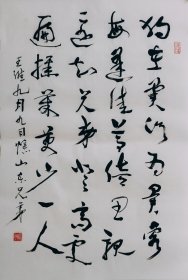 独在異乡为異客
每逢佳节倍思親
遥知兄弟登高処
遍插茱萸少一人
王維九月九日憶山东兄弟